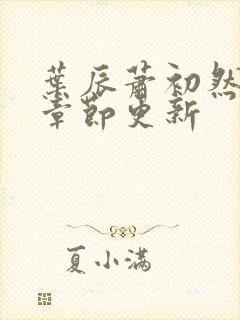 葉辰蕭初然
章節更新
夏小满